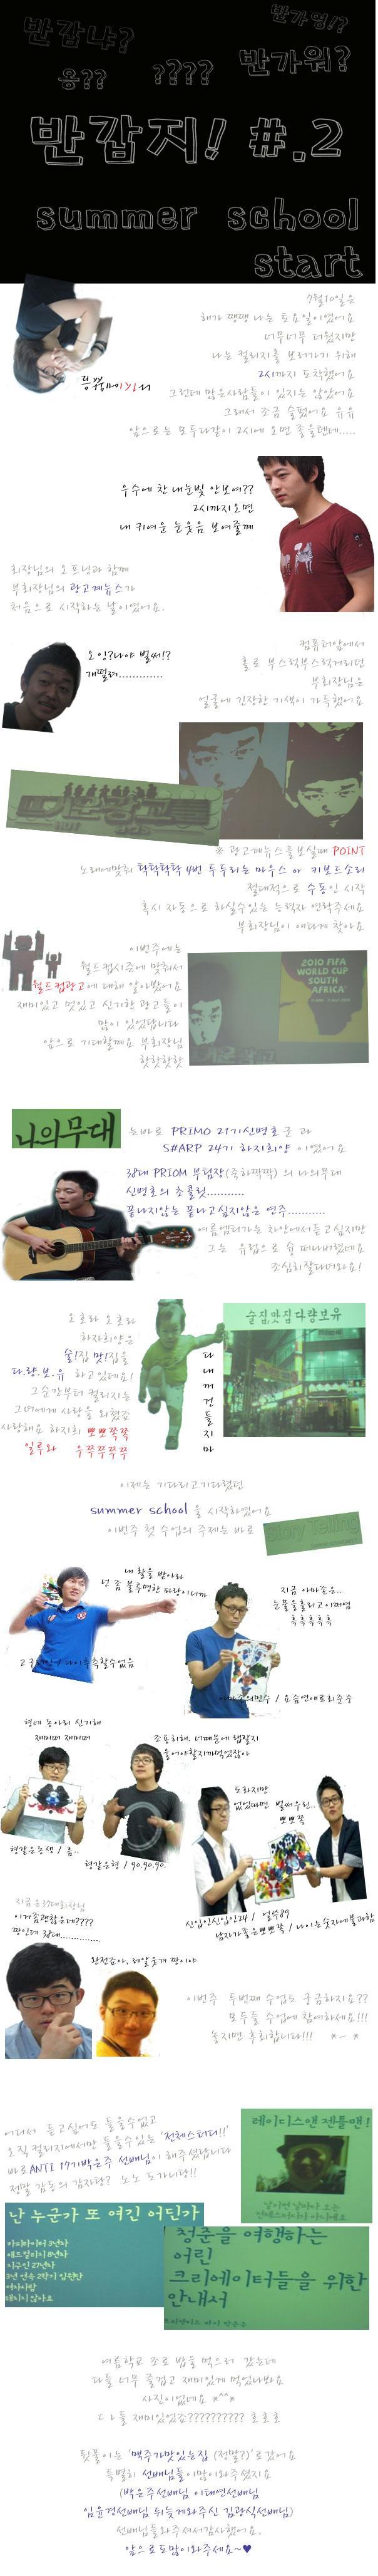 반갑냐?
반가염!?
옹??
????
반가워?
반갑지! #.2
summer school
start
7월10일은
해가 쨍쨍 나는 토요일이었어요
너무너무 더웠지만
나는 컬리지를 보러가기 위해
2시까지 도착했어요
그런데 많은사람들이 있지는 않았어요
그래서 조금 슬펐어요 유유
앞으로는 모두다같이 2시에 오면 좋을텐데.....
우수에 찬 내눈빛 안보여??
2시까지오면
내 귀여운 눈웃음 보여줄께
회장님의 오프닝과 함께
부회장님의 광고계뉴스가
처음으로 시작하는 날이였어요.
오잉?나야 벌써!?
개떨려.............
컴퓨터앞에서
홀로 부스럭부스럭거리던
부회장님은
얼굴에 긴장한 기색이 가득했어요
뜨거운광고를
※ 광고계뉴스를보실때 POINT
노래에맞춰 탁탁탁탁 4번 두두리는 마우스 or 키보드소리
절대적으로 수동인 시작
혹시 자동으로 하실수있는 능력자 연락주세요
부회장님이 애타게 찾아요
이번주에는
월드컵시즌에 맞춰서
월드컵광고에 대해 알아봤어요
재미있고 멋있고 신기한 광고들이
많이 있었답니다
앞으로 기대할께요 부회장님
핫핫핫핫
2010 FIFA
WORLD CUP
SOUTH
AFRICA
나의무대
는바로 PRIMO 21기신병호군 과
S#ARP 24기 하지희양 이였어요
38대 PRIOM 부팀장(축하짝짝) 의 나의무대
신병호의 초콜릿...........
끝나지않는 끝나고싶지않은 연주...........
여름엠티가는 차안에서듣고싶지만
그는 유럽으로 슝 떠나버렸네요
조심히잘다녀와요!
오호라 오호라
하지희양은
술!집 맛!집을
다.량.보.유 하고있네요!
그순간부터 컬리지는
그녀에게 사랑을 외쳤죠
사랑해요 하지희 뽀뽀쪽쪽
일루와 우쭈쭈쭈쭈
다
내
꺼
건
들
지
마
술집,맛집다량보유
이제는 기다리고기다렸던
summer school 을 시작하였어요
이번주 첫 수업의 주제는 바로
Story Telling
내 활을 받아라
넌 좀 불투명한 파랑이니까
지금 아마손은..
눈물을흘리고이써염
흑흑흑흑흑
형네 동아리 신기해
재미떠 재미떠
조용히해. 너때문에 햄릿지
들어야할지까먹었잖아
형같은동생 / 흠..
형같은형 / 왜.왜.왜.
도와지만
없었따면 벌써우린..
뽀뽀쪽
신입인신입인24 / 얼쑤89
남자가좋은뽀뽀쪽 / 나이는숫자에불과함
지금은37대회장님
이거좀괜찮은데????
짱인데 38대..............
완전좋아, 레알웃겨 짱이야
이번주 두번째 수업도 궁금하지요??
모두들 수업에 참여하세요!!!
놓치면 후회합니다!!! *- *
어디서 듣고싶어도 들을수없고
오직 컬리지에서만 들을수있는 '전체스터디!!'
바로ANTI 17기박은주 선배님이 해주셨답니다
정말 감동의 감자탕? 노노 도가니탕!!
레이디스앤 젠틀맨!
난 누군가 또 여긴 어딘가
카피라이터 3년차
애드컬리지 8년차
지구인 27년차
3년 연속 2학기 임원단
여자사람
해치지 않아요
청춘을 여행하는
어린
크리에이터들을 위한
안내서
여름학교 종료 밥을 먹으러 갔는데
다들 너무 즐겁고 재미있게 먹었나봐요
사진이없네요 *^^*
ㄷ ㅏ들 재미있었죠?????????? 호호호
뒷풀이는 '맥주가맛있는집 (정말?)'로갔어요
특별히 선배님들이많이와주셨지요
(박은주선배님 이태연선배님
임윤경선배님 뒤늦게와주신 김광식선배님)
선배님들와주셔서감사했어요.
앞으로도많이와주세요~♥